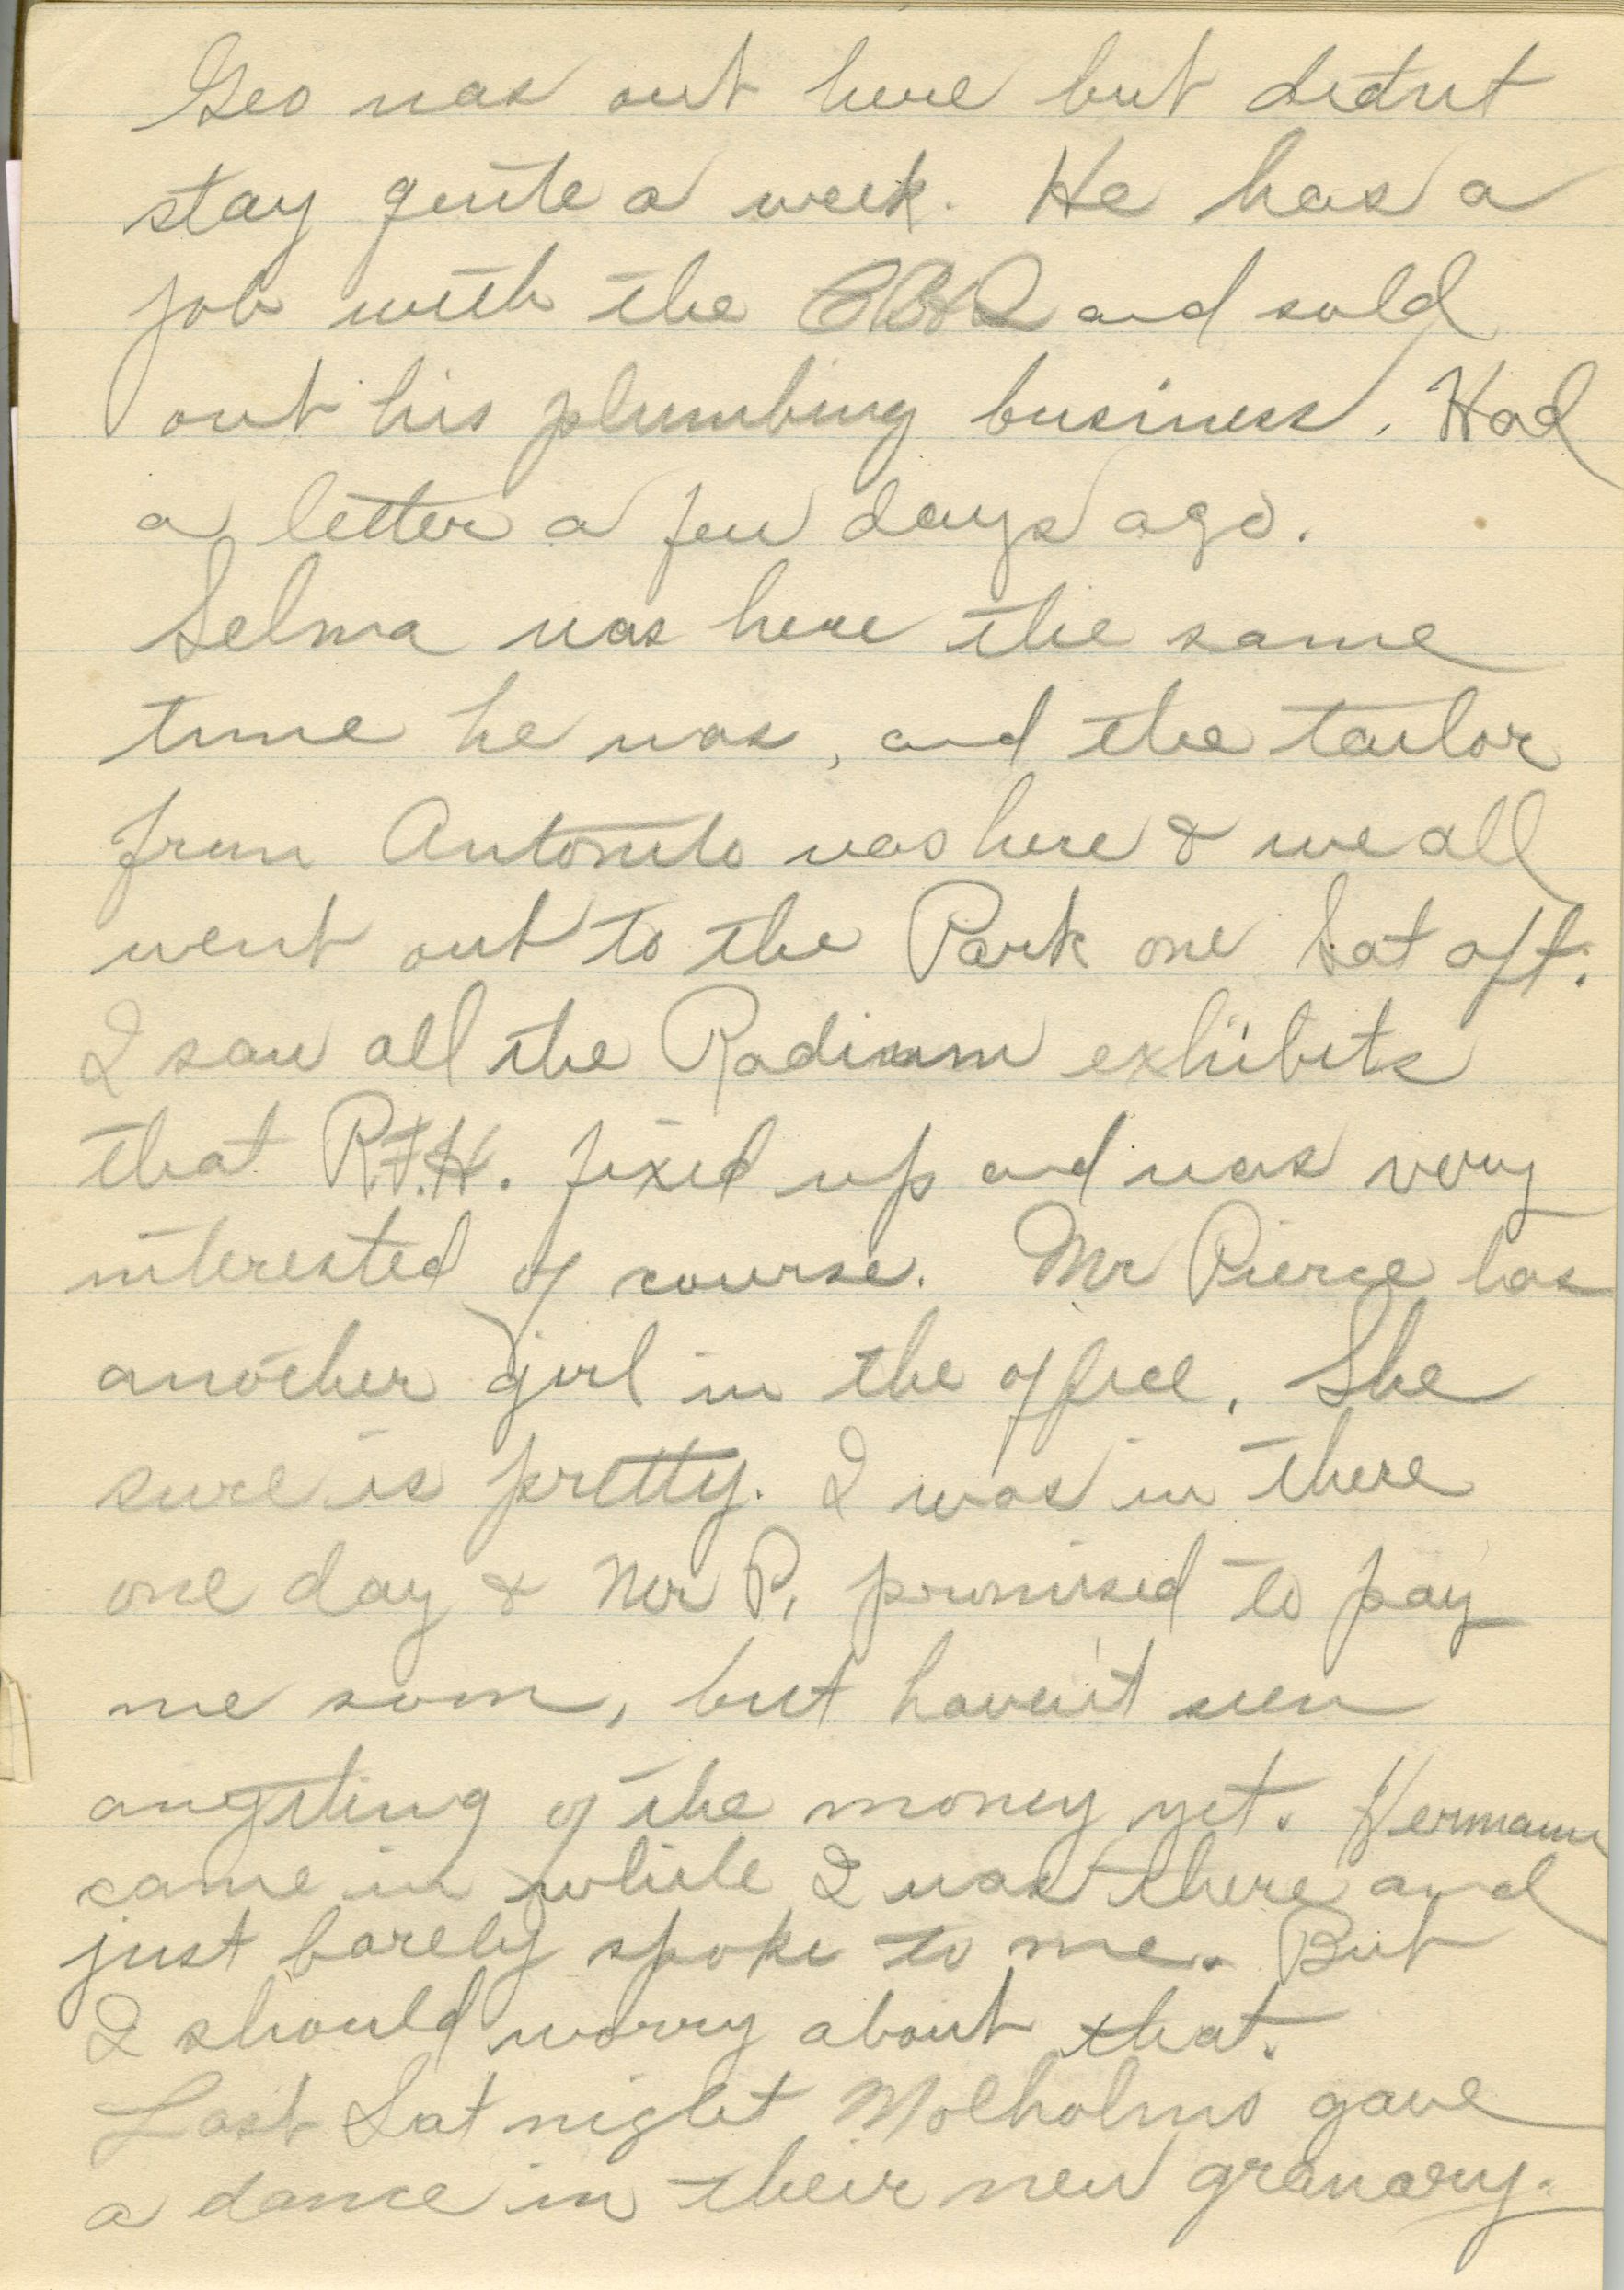 Geo was out here but didnt
stay quite a week. He has a
job with the and sold
out his plumbing business. Had
a letter a few days ago.
Selma was here the same
time he was, and the tailor
from Antonito was here & we all
went out to the Park one Sat aft.
I saw all the Radium exhibits
that R.F.H. fixed up and was very
interested of course. Mr Pierce has
another girl in the office. She
sure is pretty. I was in there
one day & Mr P. promised to pay
me som, but haven't seen
anything of the money yet. Hermann
came in while I was there and
just barely spoke to me. But
I should worry about that.
Last Sat night Molholms gave
a dance in their new granary.